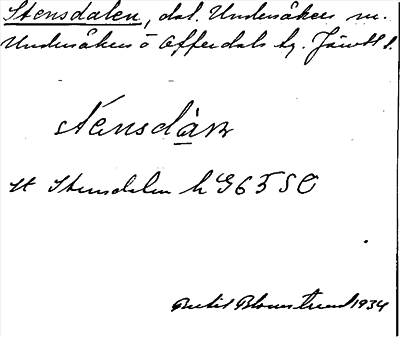 Stensdalen, dal. Undersåkers sn.
Undersåkers o Offerdals tg. Jämtl l.
stensdàɴ
st Stensdalen h G65 SO
Bertil Blomstrand 1934